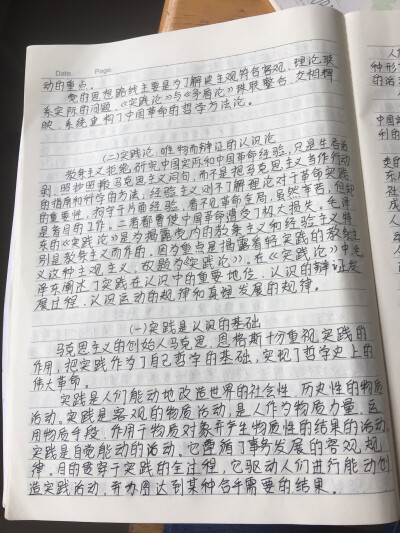 Date.      Page.
动的重点。
党的思想路线主要是为了解决主观符合客观、理论联
系实际的问题。《实践论》与《矛盾论》珠联璧合，交相辉
映，系统重构了中国革命的哲学方法论。
(二)实践论：唯物而辩证的认识论
教条主义拒绝研究中国实际和中国革命经验，只是生吞活
剥、照抄照搬马克思主义词句，而不是把马克思主义当作行动
的指南和科学的方法；经验主义则不了解理论对于革命实践
的重要性，拘守于片面经验，看不见革命全局，虽然辛苦，但却
是盲目的工作。二者都曾使中国革命遭受了极大损失。毛泽
东的《实践论》是为揭露党内的教条主义和经验主义特
别是教条主义而作的，因为重点是揭露看轻实践的教条主
义这种主观主义，故题为《实践论》。在《实践论》中，毛
泽东阐述了实践在认识中的重要地位，认识的辩证发
展过程，认识运动的规律和真理发展的规律。
(一)实践是认识的基础
马克思主义的创始人马克思、恩格斯十分重视实践的
作用，把实践作为了自己哲学的基础，实现了哲学史上的
伟大革命。
实践是人们能动地改造世界的社会性、历史性的物质
活动。实践是客观的物质活动，是人作为物质力量，运
用物质手段，作用于物质对象并产生物质性的结果的活动。
实践是自觉能动的活动。它遵循了事务发展的客观规
律。目的贯穿于实践的全过程，它驱动人们进行能动创
造实践活动，并力图达到某种合乎需要的结果。